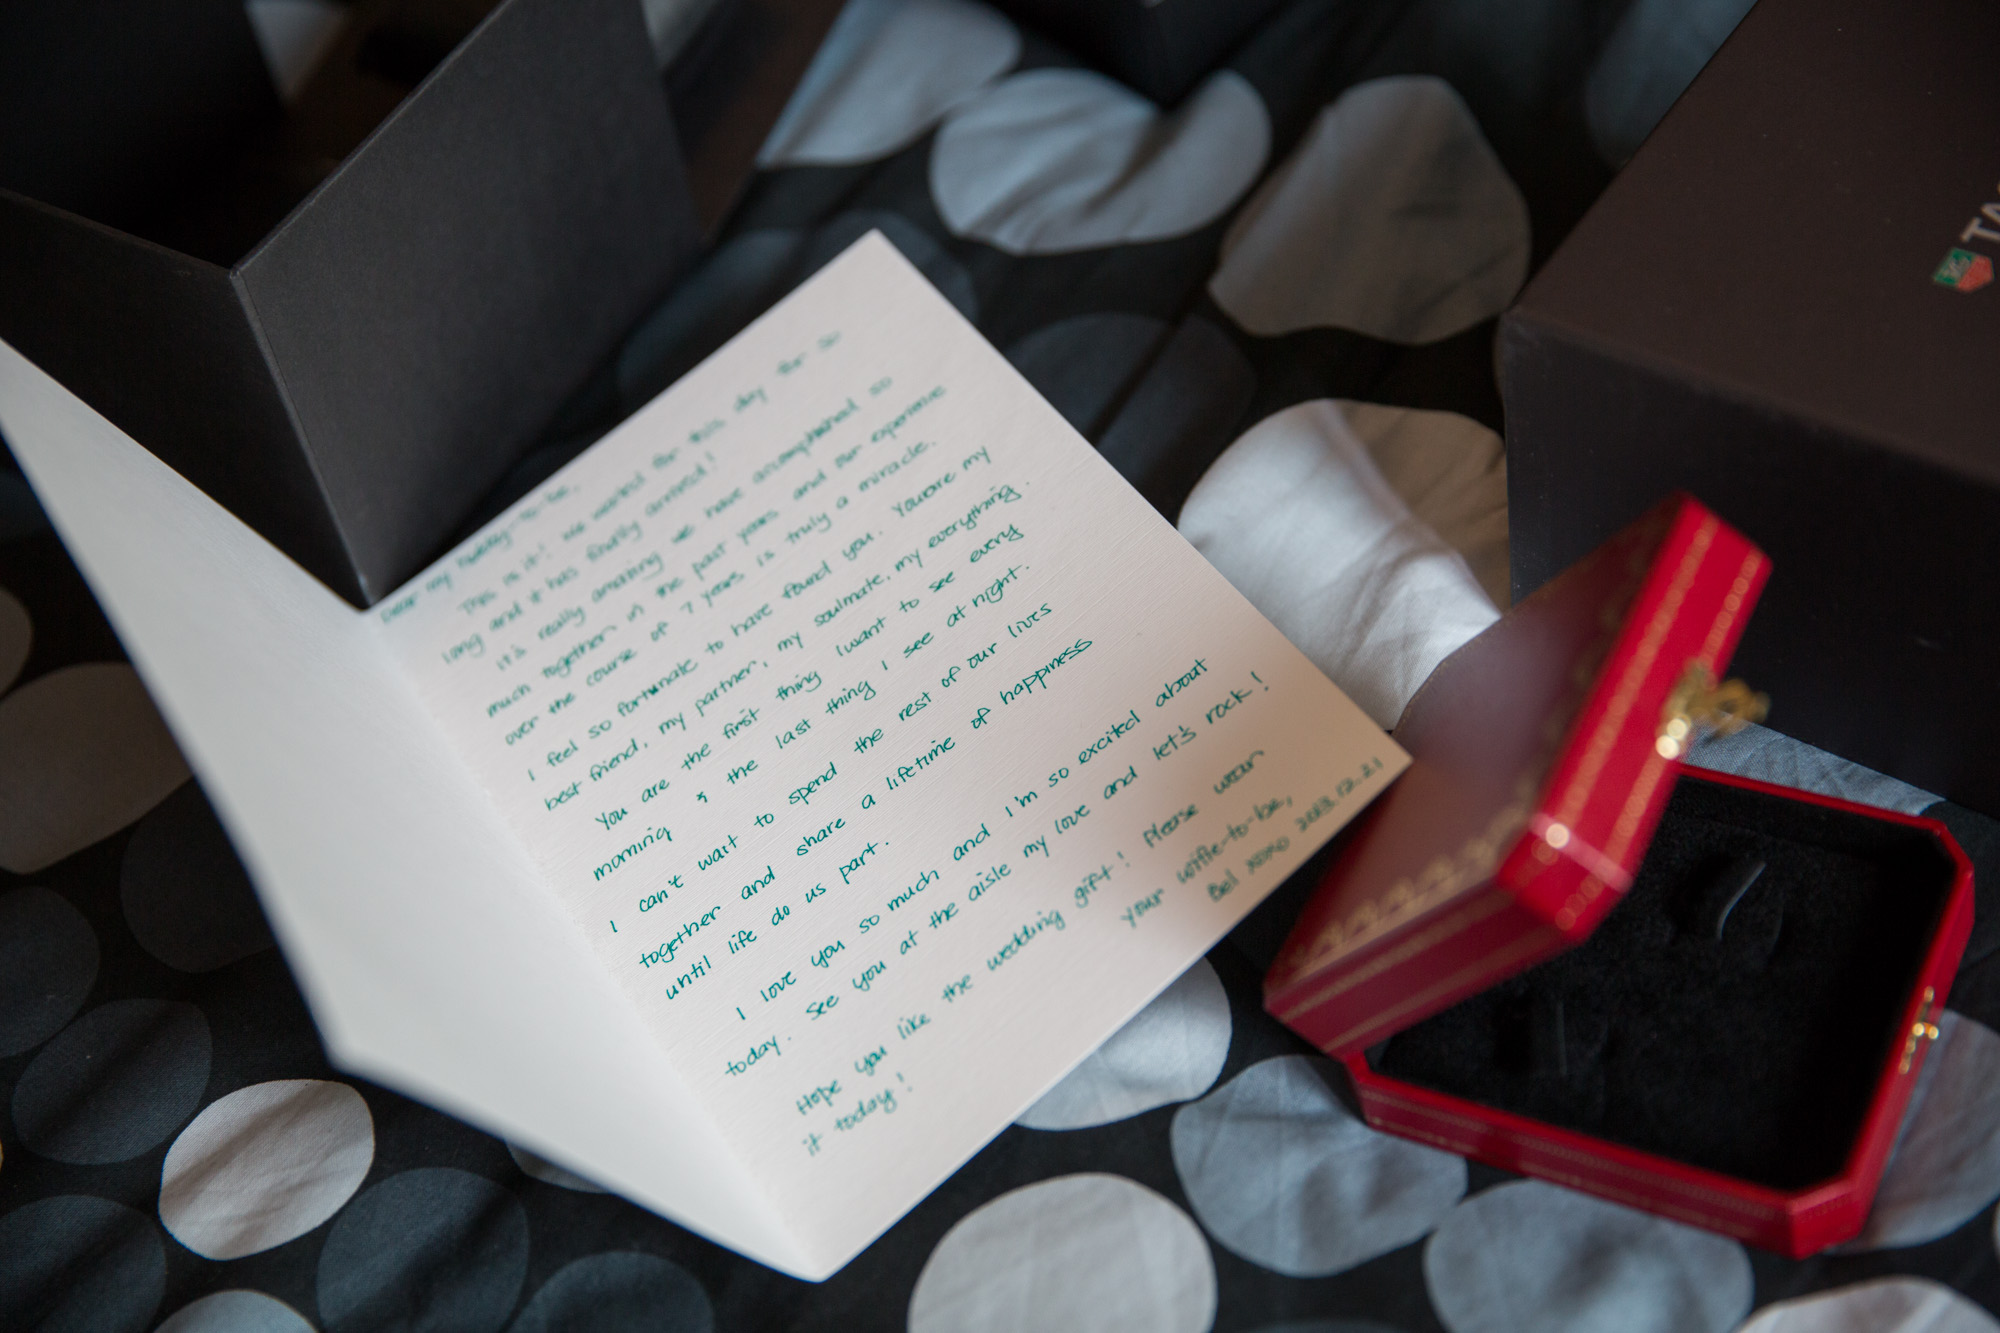 Dear my hubby-to-be,
This is it! We waited for this day for so
long and it has finally arrived!
It's really amazing we have accomplished so
much together in the past years and our experience
over the course of 7 years is truly a miracle.
I feel so fortunate to have found you. You are my
best friend, my partner, my soulmate, my everything.
You are the first thing I want to see every
morning & the last thing I see at night.
I can't wait to spend the rest of our lives
together and share a lifetime of happiness
until life do us part.
I love you so much and I'm so excited about
today. See you at the aisle my love and let's rock!
Hope you like the wedding gift! Please wear
it today!
your wiffie-to-be,
Bel xoxo 2013.12.21
TA